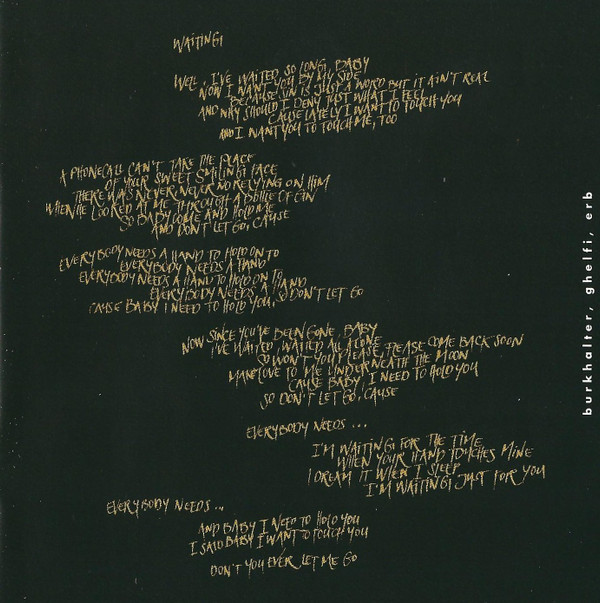 WAITING
WELL, I'VE WAITED SO LONG, BABY
NOW I WANT YOU BY MY SIDE
BECAUSE SIN IS JUST A WORD BUT IT AIN'T REAL
AND WHY SHOULD I DENY JUST WHAT I FEEL
CAUSE LATELY I WANT TO TOUCH YOU
AND I WANT YOU TO TOUCH ME, TOO
A PHONECALL CAN'T TAKE THE PLACE
OF YOUR SWEET SMILING FACE
THERE WAS NEVER NEVER NO RELYING ON HIM
WHEN HE LOOKED AT ME THROUGH A BOTTLE OF GIN
SO BABY COME AND HOLD ME
AND DON'T LET GO, CAUSE
EVERYBODY NEEDS A HAND TO HOLD ON TO
EVERYBODY NEEDS A HAND
EVERYBODY NEEDS A HAND TO HOLD ON TO
EVERYBODY NEEDS A HAND
CAUSE BABY I NEED TO HOLD YOU, SO DON'T LET GO
NOW SINCE YOU'VE BEEN GONE, BABY
I'VE WAITED, WAITED ALL ALONE
SO WON'T YOU PLEASE, PLEASE COME BACK SOON
MAKE LOVE TO ME UNDERNEATH THE MOON
CAUSE BABY, I NEED TO HOLD YOU
SO DON'T LET GO, CAUSE
EVERYBODY NEEDS ...
I'M WAITING FOR THE TIME
WHEN YOUR HAND TOUCHES MINE
I DREAM IT WHEN I SLEEP
I'M WAITING JUST FOR YOU
EVERYBODY NEEDS ...
AND BABY I NEED TO HOLD YOU
I SAID BABY I WANT TO TOUCH YOU
DON'T YOU EVER LET ME GO
burkhalter, ghelfi, erb